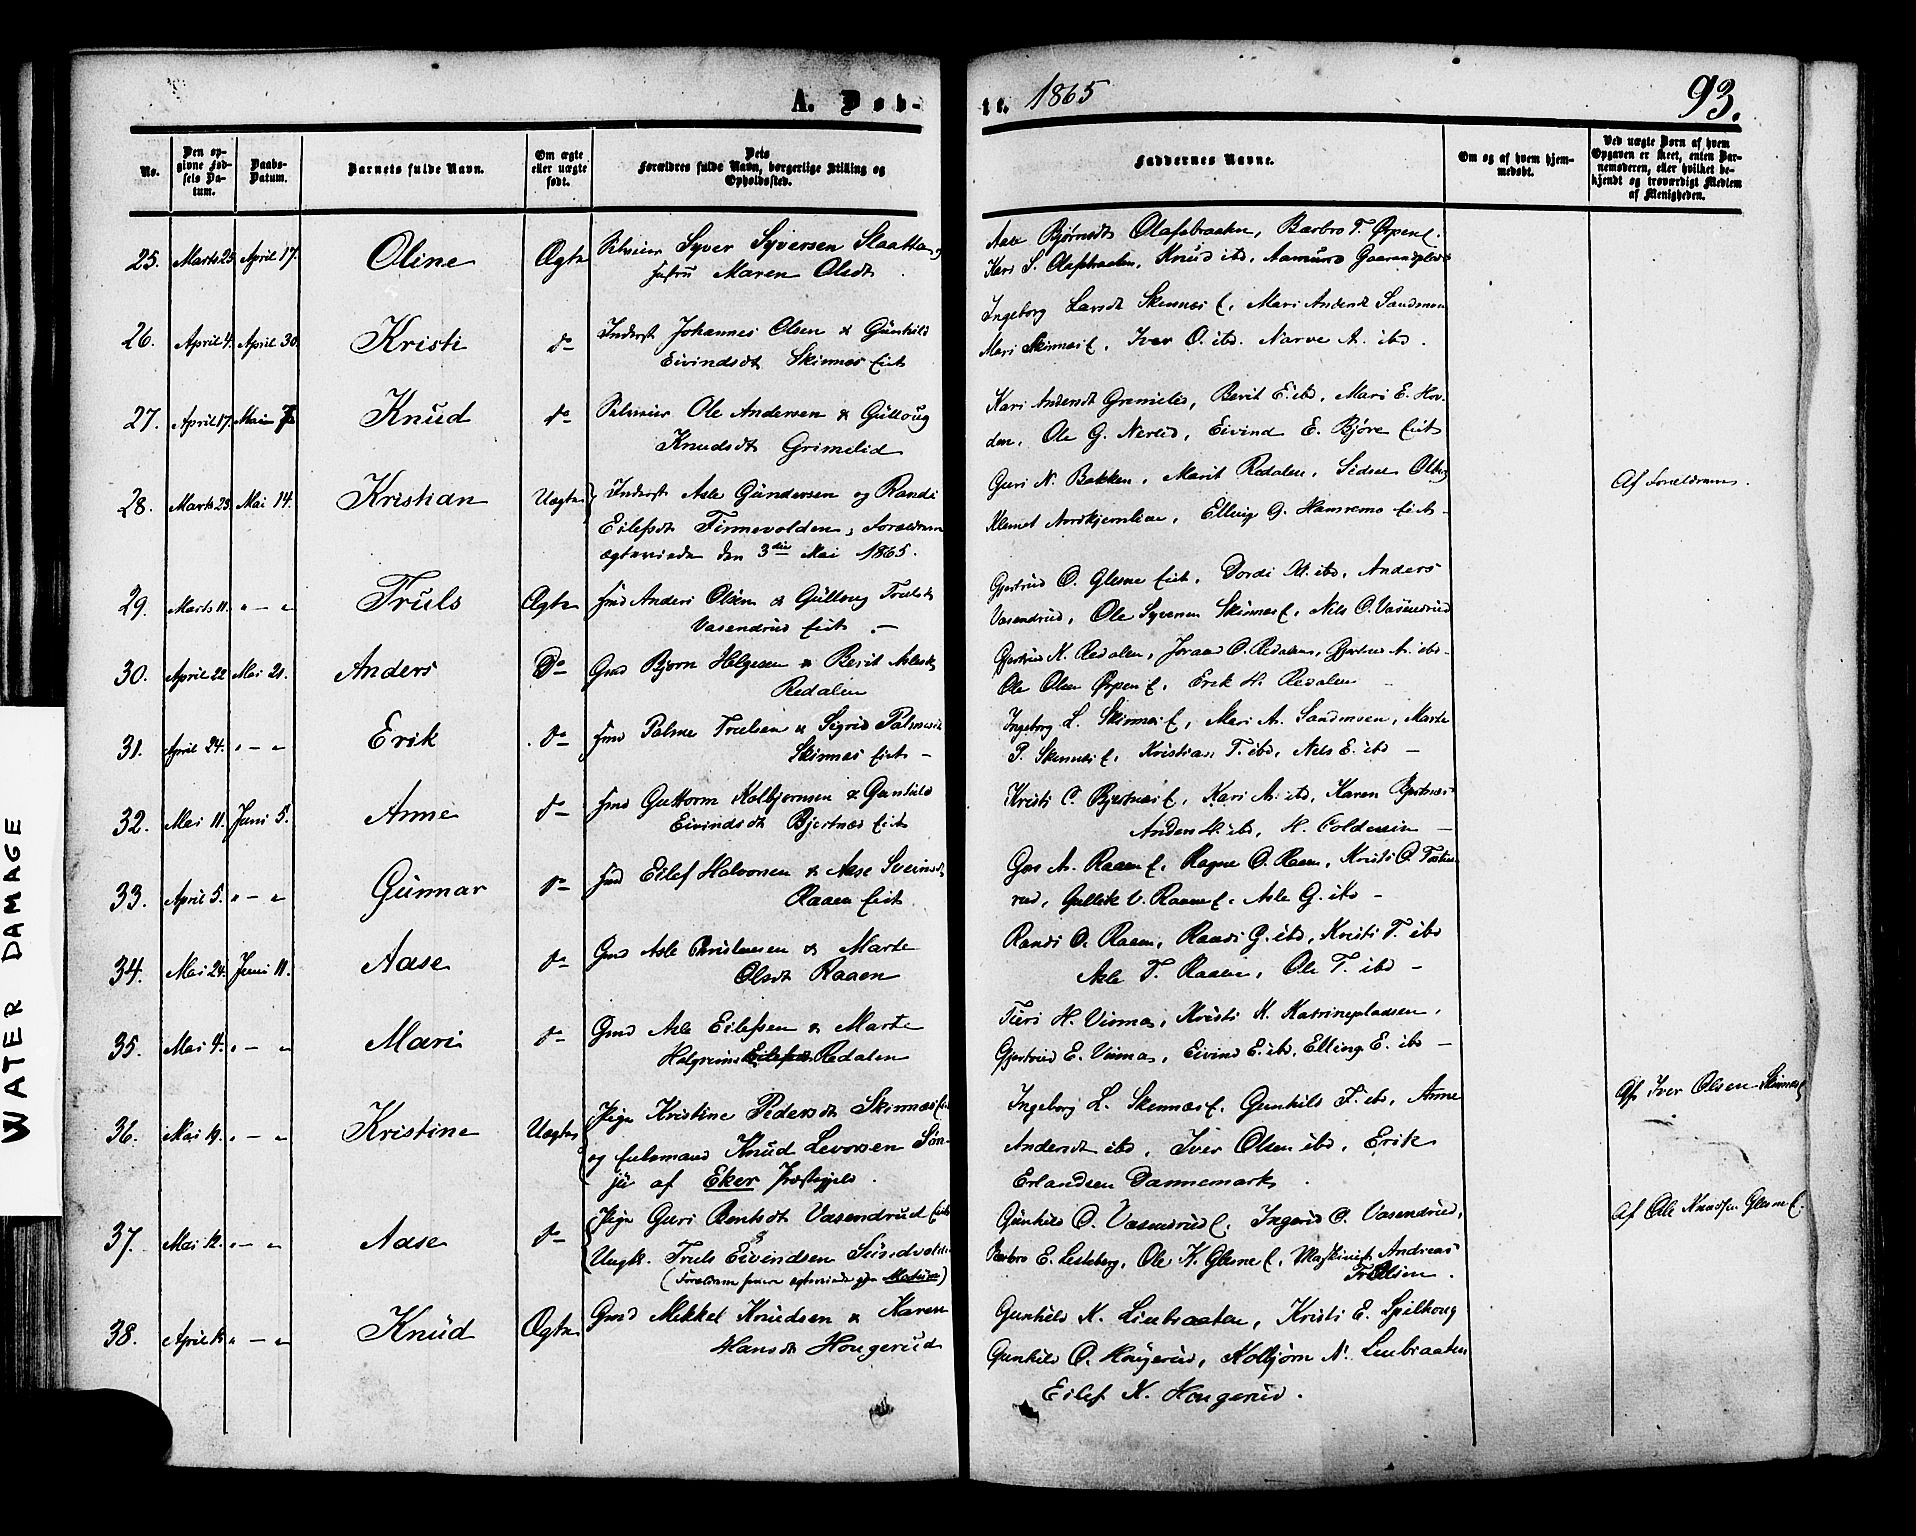 A. Døb-
te. 1865
93.
No.
Den op-
givne Fød-
sels Da-
tum.
Daabs-
Datum.
Barnets fulde Navn.
Om ægte
eller uægte
født.
Dets
Forældres fulde Navn, borgerlige Stilling og
Opholdssted.
Faddernes Navne.
Om og af hvem hjem-
medøbt.
Ved uægte Børn af hvem
Opgaven er skeet, enten Bar-
nemoderen, eller hvilket be-
kjendt og troværdigt Medlem
af Menigheden.
25. Marts 25. April 17. Oline Ægte Selveier Syver Syversen Slaatten og
Maren Olsdt
Aase Bjørnsdt Olafsbraaten, Barbro T. Ørpen E.
Kari S. Olafsbraaten, Knud ibd, Aamund
26. April 4. April 30. Kristi do Inderst Johannes Olsen & Gunhild
Eivindsdt Skinnes Eiet
Ingeborg Larsdt Skinnes E, Mari Andersdt Sandmoen
Mari Skinnes E, Iver O. ibd. Narve A. ibd.
27. April 17. Mai 7 Knud do Selveier Ole Andersen & Gulloug
Knudsdt Grimelid
Kari Andersdt Grimelid, Berit E. ibd, Mari E. Hov-
den, Ole G. Nerlid, Eivind E. Bjøre Eiet
28. Marts 23. Mai 14. Kristian Uægte Inderst Asle Gundersen og Randi
Eilefsdt Finnevolden, Forældrene
ægteviede den 3die Mai 1865.
Guri N. Bakken, Marit Redalen, Sidsel
Klemet Nordkjernlien, Elling G. Hamremo Eiet
Af Forældrene.
29. Marts 11. " — " Truls Ægte Gmd Anders Olsen & Gulloug Trulsdt
Vasendrud Eiet. —
Gjertrud O. Glesne Eiet, Dordi M. ibd, Anders
Vasendrud, Ole Syversen Skinnes E, Nils O. Vasendrud
30. April 22 Mai 21. Anders Do Gmd Bjørn Helgesen & Berit Aslesdt
Redalen
Gjertrud K. Redalen, Joraand O. Redalen, Gjertrud A. ibd
Ole Olsen Ørpen E, Erik H. Redalen
31. April 24. " — " Erik do Gmd Palme Trulsen & Sigrid Palmesdt
Skinnes Eiet —
Ingeborg L. Skinnes E, Mari A. Sandmoen, Marte
P. Skinnes E, Kristian T. ibd, Nils E. ibd —
32. Mai 11. Juni 5. Anne do Gmd Guttorm Kolbjørnsen & Gunhild
Eivindsdt Bjertnes Eiet
Kristi O. Bjertnes E, Kari A. ibd, Karen Bjertnes
Anders H. ibd, H. Coldevin —
33. April 5. " — " Gunnar do Gmd Eilef Halvorsen & Aase Sveinsdt
Raaen Eiet.
A. Raaen E, Ragne O. Raaen, Kristi O.
rud, Gullik V. Raaen E, Asle G. ibd —
34. Mai 24. Juni 11. Aase do Gmd Asle & Marte
Olsdt Raaen
Randi O. Raaen, Randi G. ibd, Kristi T. ibd
Asle T. Raaen, Ole T. ibd —
35. Mai 4. " — " Mari do Gmd Asle Eilefsen & Marte
Halgrims Redalen
Turi H. Vinnes, Kristi K. Katrinepladsen,
Gjertrud E. Vinnes, Eivind E. ibd, Elling E. ibd —
36. Mai 19. " — " Kristine Uægte Pige Kristine Pedersdt Skinnes Eiet
og Knud Levorsen Søn-
ju af Eker Præstegjeld.
Ingeborg L. Skinnes E, Gunhild T. ibd, Anne
Andersdt ibd, Iver Olsen ibd, Erik
Erlandsen Dannemark.
Af Iver Olsen Skinnes E
37. Mai 12. " — " Aase do Pige Guri Berntsdt Vasendrud Eiet &
Ungk. Truls Eivindsen Sundvolden
(Forældrene senere ægteviede paa Modum)
Gunhild O. Vasendrud E, Ingerid O. Vasendrud,
Barbro E. Lesteberg, Ole K. Glesne E, Maskinist Andreas
Trulsen.
Af Ole Knudsen Glesne E.
38. April " — " Knud Ægte Gmd Mikkel Knudsen & Karen
Hansdt Hougerud
Gunhild K. Liubraaten, Kristi E. Spilhoug
Gunhild O. Hougerud, Kolbjørn N. Liubraaten
Eilef K. Hougerud.
WATER DAMAGE